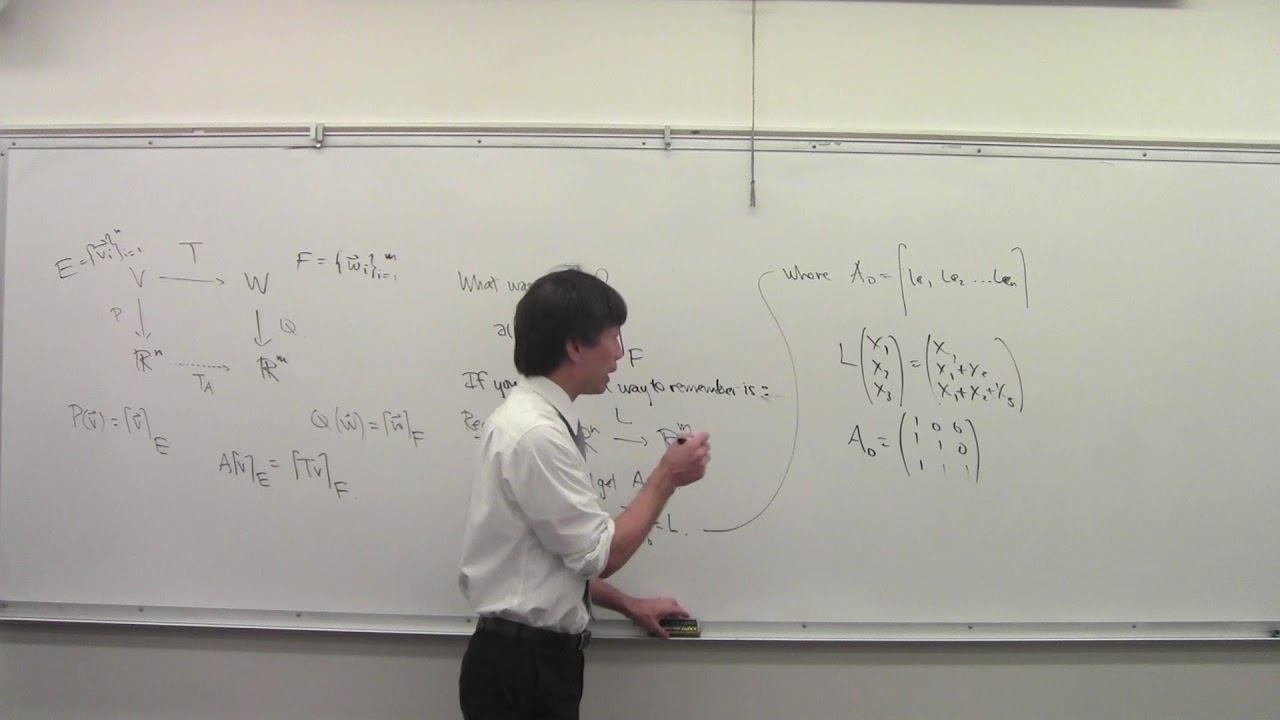 E = {v⃗ᵢ}ⁿᵢ₌₁
T
F = {w⃗ᵢ}ᵐᵢ₌₁
V → W
P ↓ ↓ Q
ℝⁿ ⇢ ℝᵐ
T_A
P(v⃗) = [v⃗]_E
Q(w⃗) = [w⃗]_F
A[v]_E = [Tv]_F
What
F
If you way to remember is:
L
ℝⁿ → ℝᵐ
get A
= L.
where A₀ = [Le₁ Le₂ ... Leₙ]
L(x₁ x₂ x₃) = (x₁ x₁+x₂ x₁+x₂+x₃)
A₀ = (1 0 0
1 1 0
1 1 1)